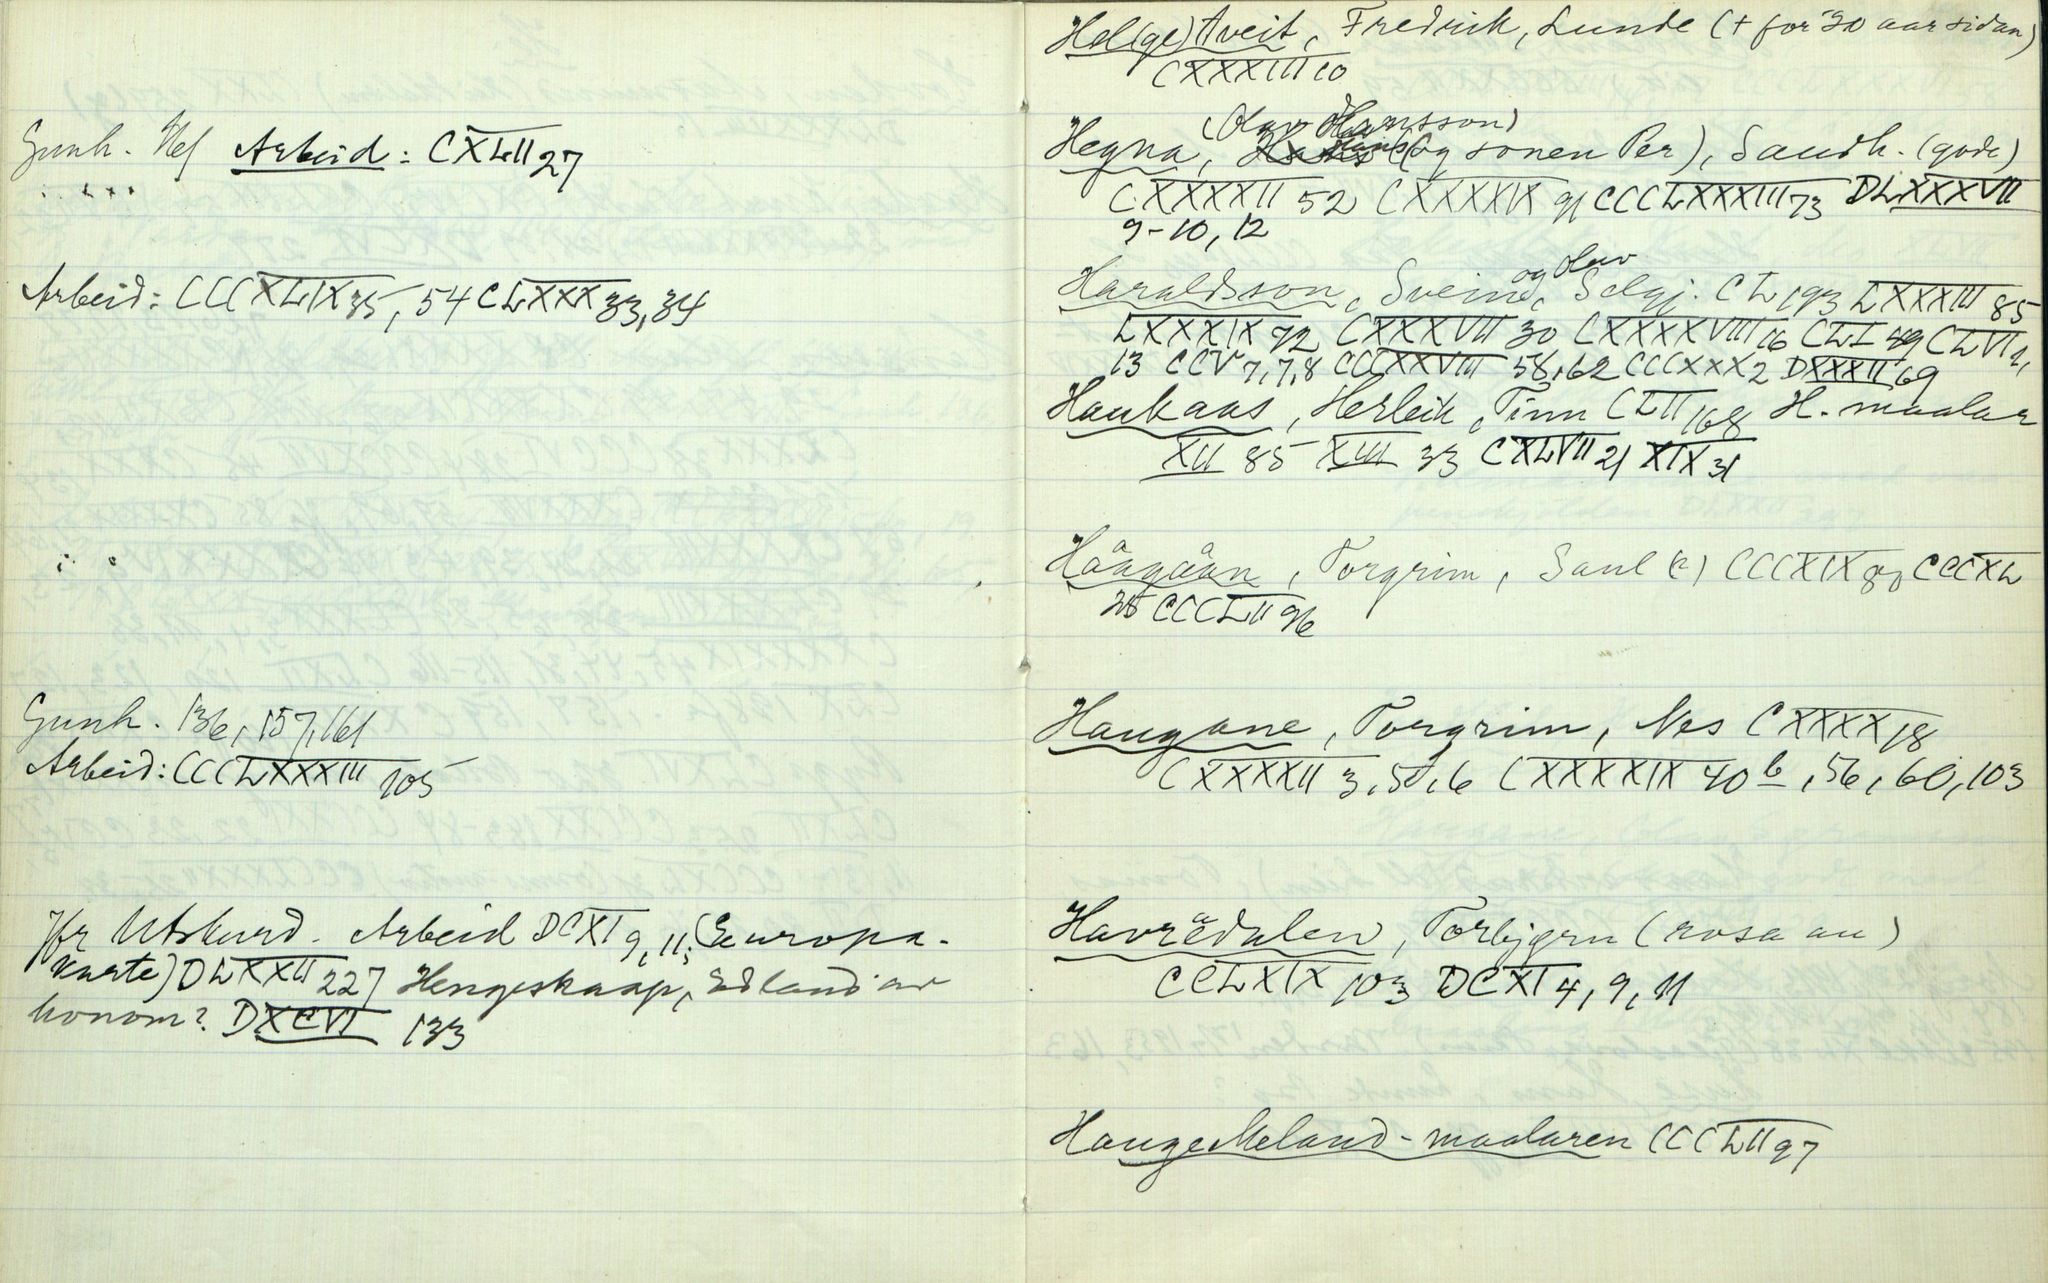 Gunh. Nef Arbeid: CXLII 27
Arbeid: CCCXLIX 35, 54 CLXXX 33, 34
Gunh. 136, 157, 161
Arbeid: CCCLXXXIII 105
Jfr Utskurd. Arbeid DCXI 9, 11, (Europa-
karte) DLXXII 227 Hengeskaap, Edland av
honom? DXCVI 133
Hel(ge)tveit, Fredrik, Lunde (+ for 30 aar sidan)
CXXXIII 10
(Olav Hansson)
Hegna, (og sonen Per), Saudh. (gode)
CXXXXII 52 CXXXXIX 91 CCCLXXXIII 73 DLXXXVII
9-10, 12
og Olav
Haraldsson, Svein, Selgj. CL 193 LXXXIII 85
LXXXIX 72 CXXXVII 30 CXXXXVIII 16 CLI 49 CLVI 2,
13 CCV 7, 7, 8 CCCXXVIII 58, 62 CCCXXX 2 DXXXII 69
Haukaas, Herleik, Tinn CLII 168 H. maalar
XII 85 XIII 33 CXLVII 21 XIX 31
Hâugåan, Torgrim, Saul (?) CCCXIX 80 CCCXL
25 CCCLII 96
Haugane, Torgrim, Nes CXXXX 18
CXXXXII 3, 5, 6 CXXXXIX 40 b, 56, 60, 103
Havrædalen, Torbjørn (rosa au)
CCLXIX 103 DCXI 4, 9, 11
Hauge Meland-maalaren CCCLII 97